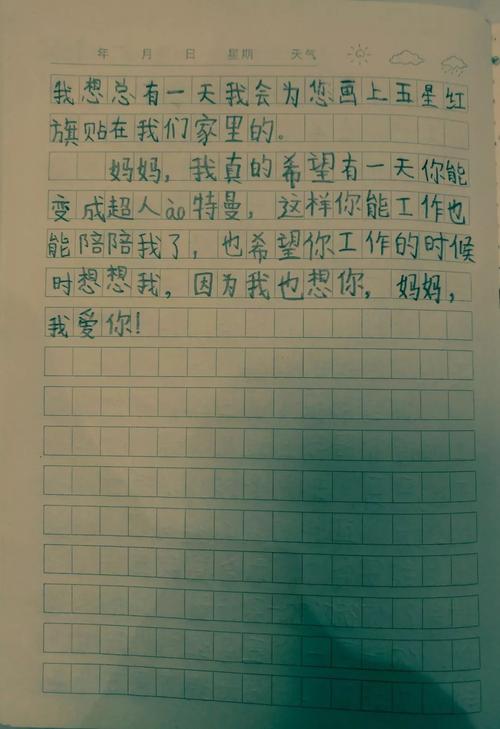 年 月 日 星期 天气
我想总有一天我会为您画上五星红
旗贴在我们家里的。
妈妈，我真的希望有一天你能
变成超人ào特曼，这样你能工作也
能陪陪我了，也希望你工作的时候
时想想我，因为我也想你，妈妈，
我爱你！